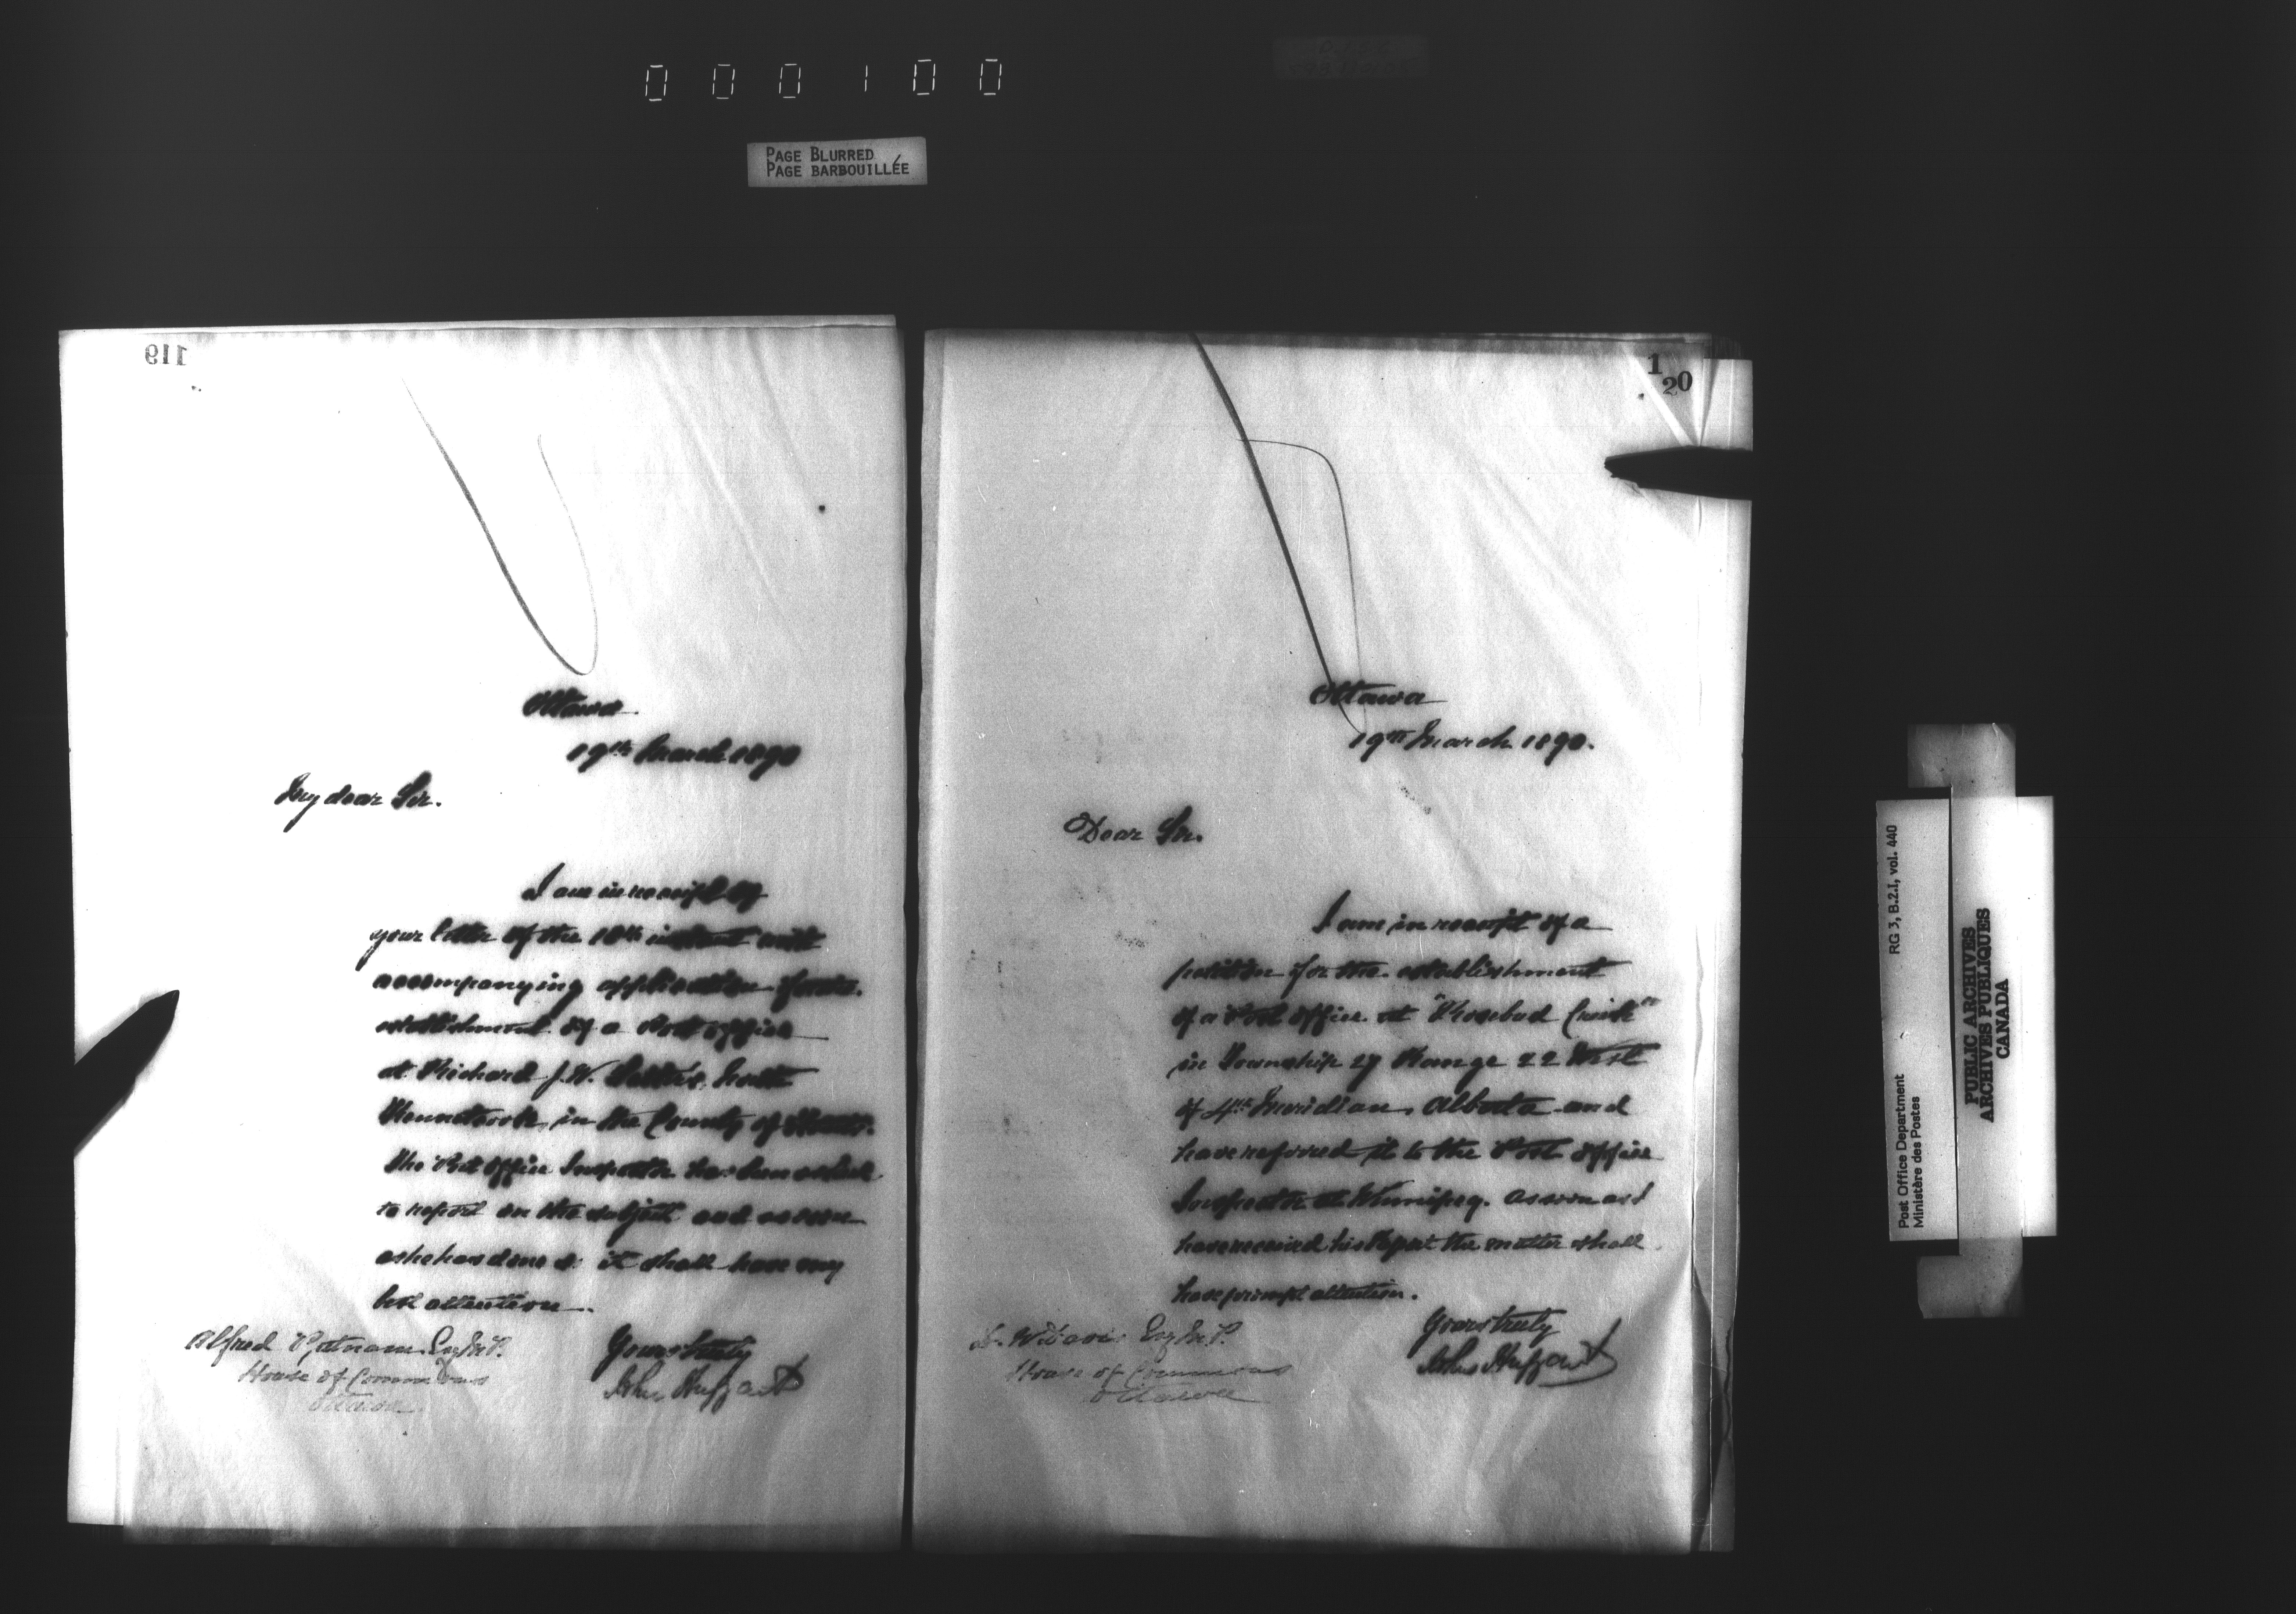 000100
PAGE BLURRED
PAGE BARBOUILLÉE
119
Ottawa
19th March 1890
My dear Sir.
I am in receipt of
your letter of the 18th instant with
accompanying application for the
establishment of a Post Office
at Richard J. W.
in the County of Hants.
The Post Office Inspector has been asked
to report on the subject and as soon
as he has done so it shall have my
best attention.
Yours truly
John Haggart
Alfred Putnam Esq M.P.
House of Commons
Ottawa.
120
Ottawa
19th March 1890.
Dear Sir.
I am in receipt of a
petition for the establishment
of a Post Office at "Rosebud Creek"
in Township 27 Range 22 West
of 4th Meridian, Alberta and
have referred it to the Post Office
Inspector at Winnipeg. As soon as I
have received his Report the matter shall
have prompt attention.
Yours truly
John Haggart
D. W. Davis Esq M.P.
House of Commons
Ottawa
Post Office Department RG 3, B.2.I, vol. 440
Ministère des Postes
PUBLIC ARCHIVES
ARCHIVES PUBLIQUES
CANADA